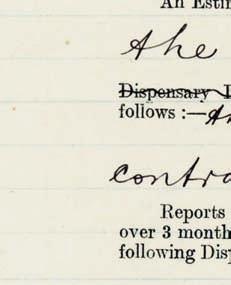 An Estim
the
Dispensary
follows :—
contra
Reports
over 3 month
following Disp